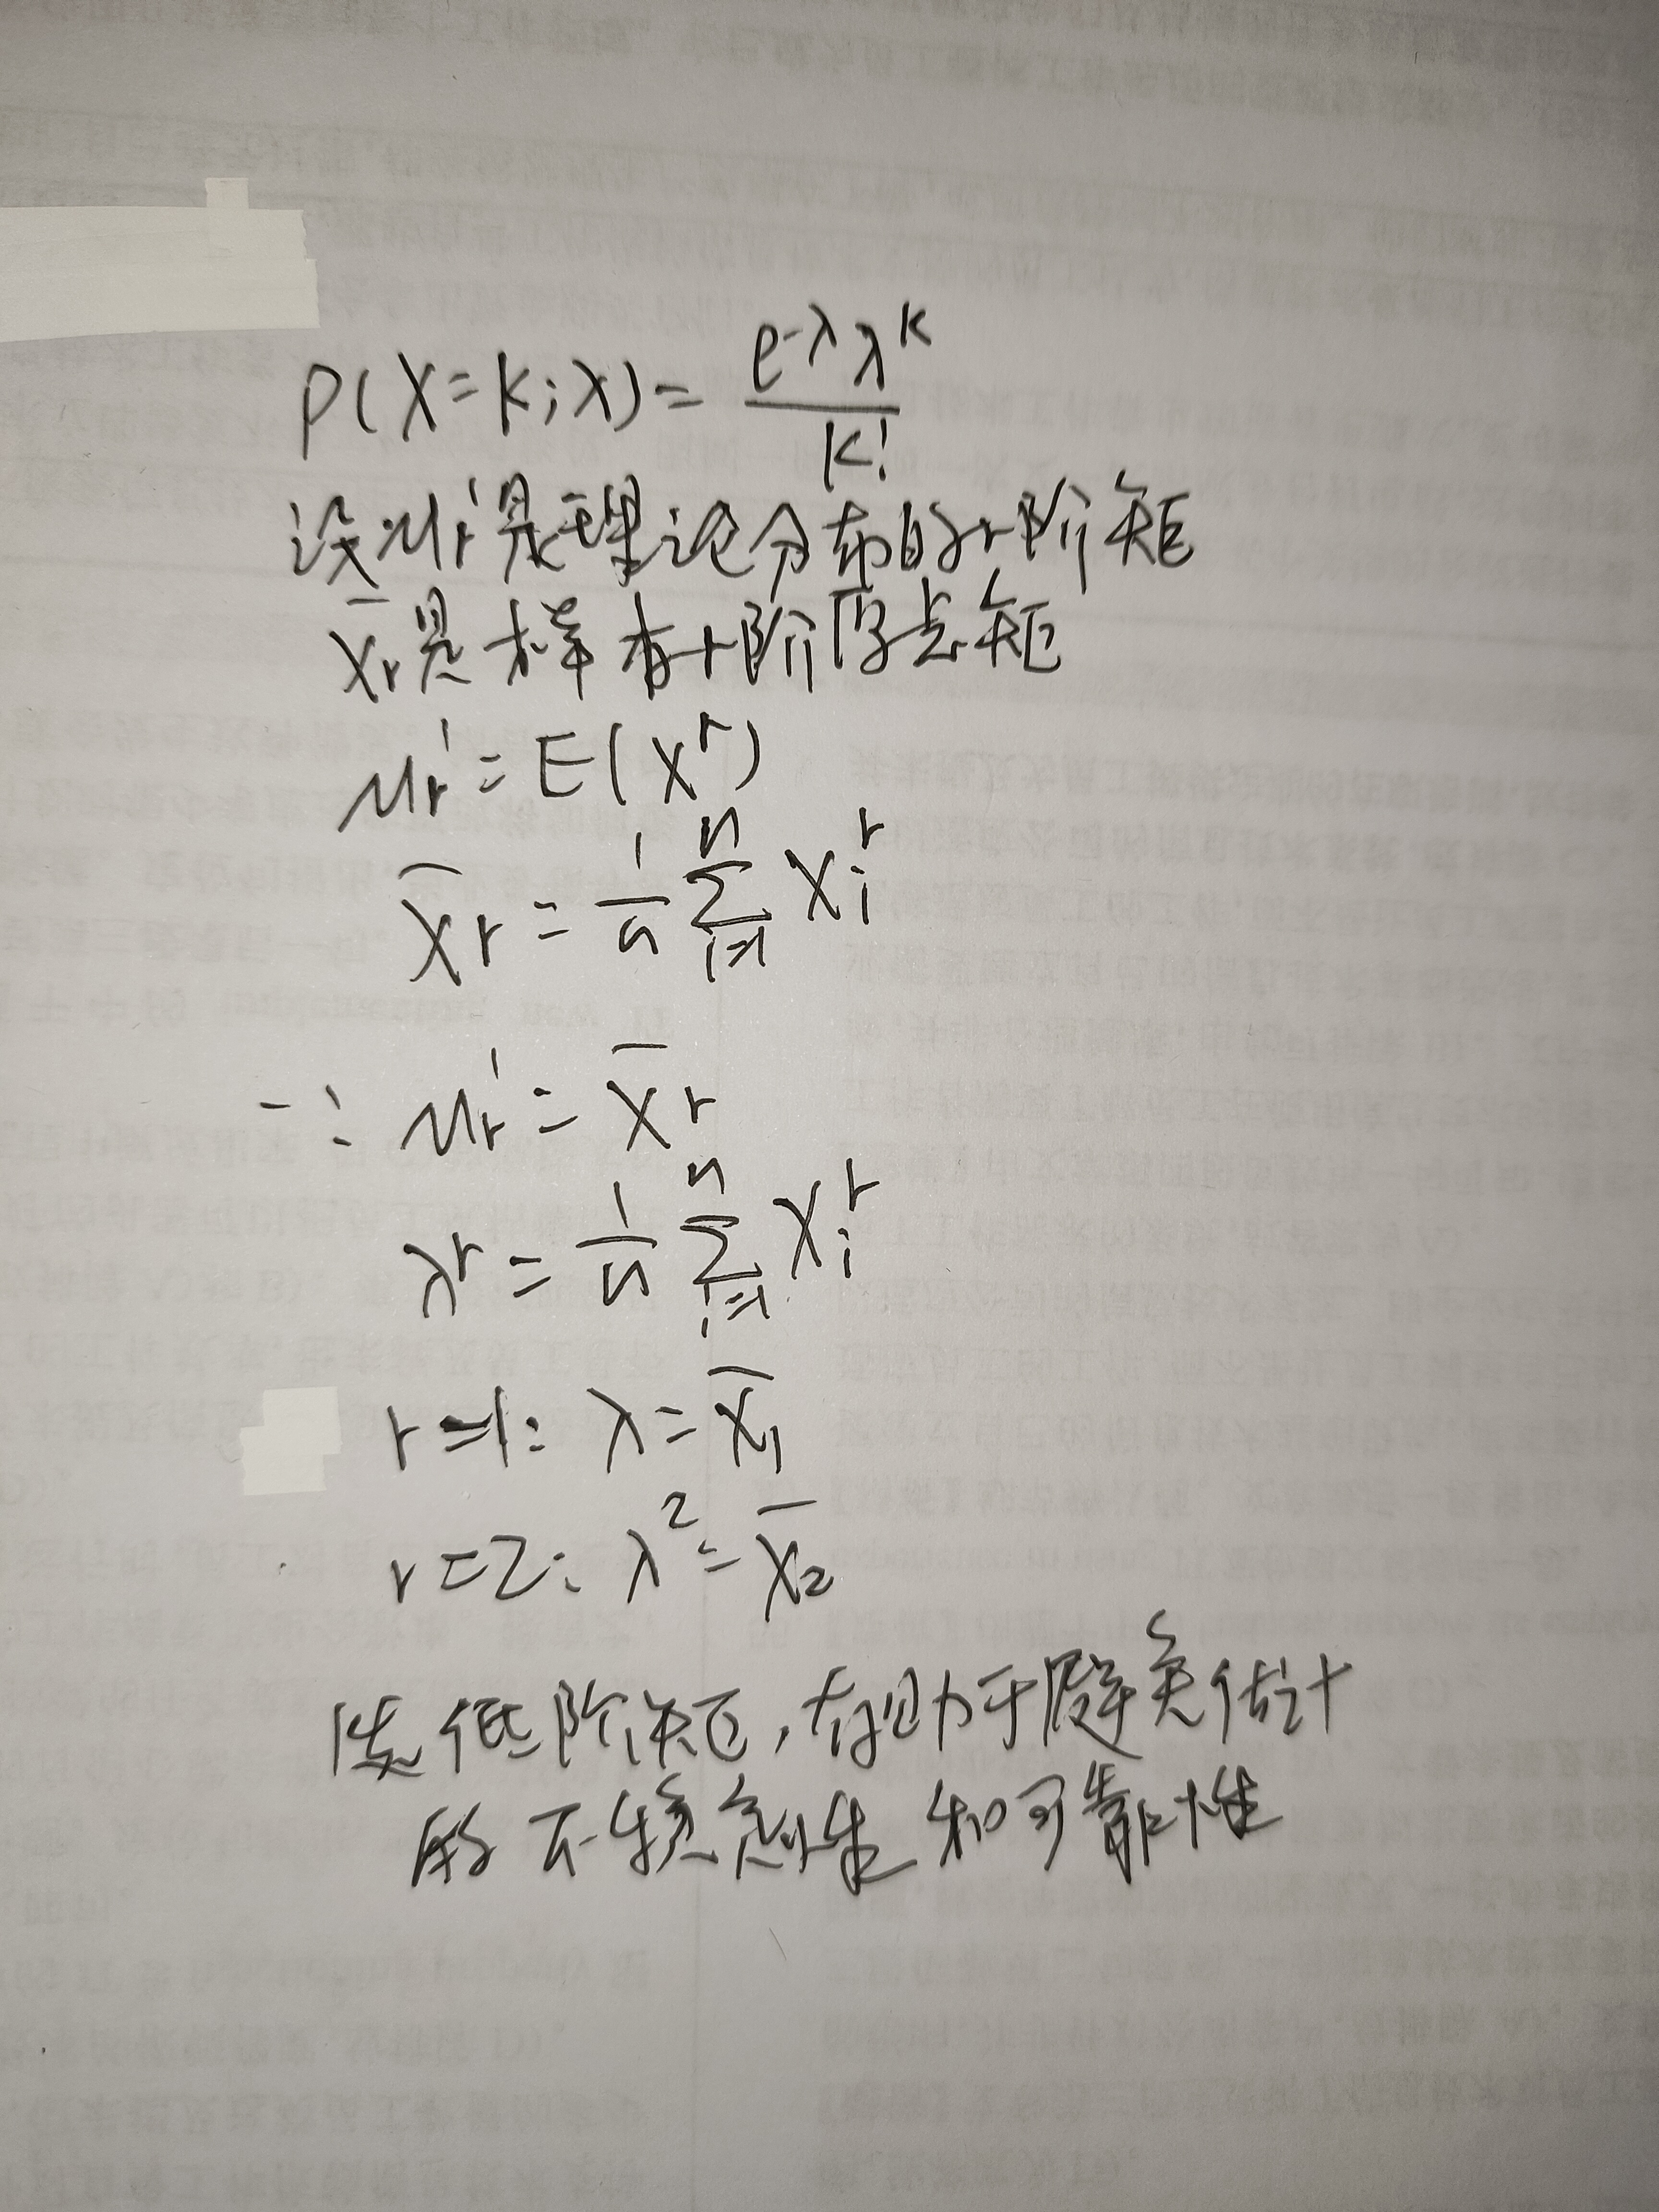 P(X=k;λ)=e^{-λ}λ^k/k!
设μr'是理论分布的r阶矩
X̄r是样本r阶原点矩
μr'=E(X^r)
X̄r=1/n Σ_{i=1}^n X_i^r
∴ μr'=X̄r
λ^r=1/n Σ_{i=1}^n X_i^r
r=1: λ=X̄1
r=2: λ^2=X̄2
低阶矩,有助于避免估计
的不稳定性和可靠性